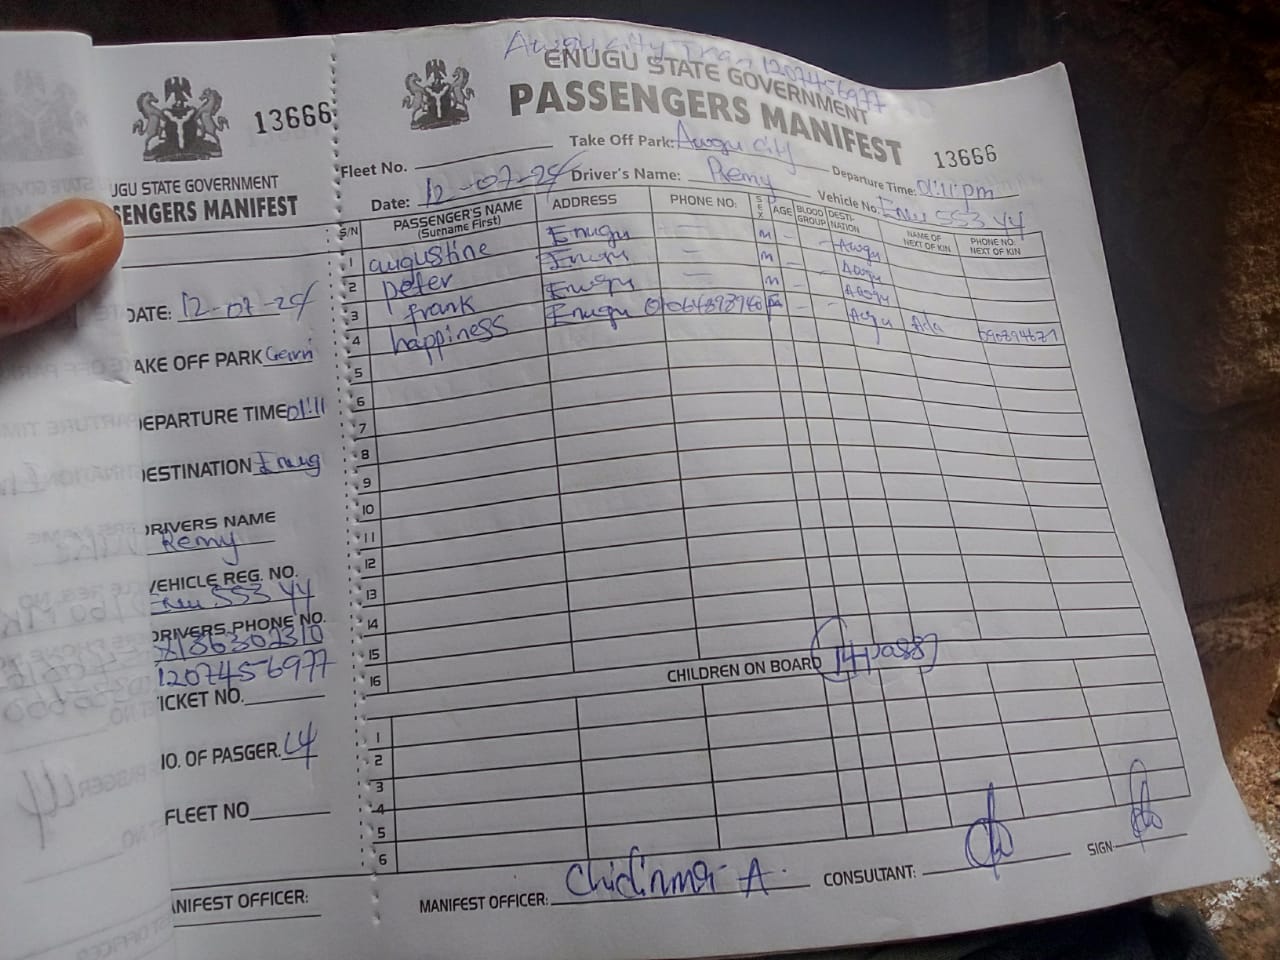 13666
UGU STATE GOVERNMENT
SENGERS MANIFEST
DATE: 12-07-24
AKE OFF PARK
DEPARTURE TIME 01:11
DESTINATION Enug
DRIVERS NAME
Remy
VEHICLE REG. NO.
Enu 553 YY
DRIVERS PHONE NO.
1207456977
TICKET NO.
NO. OF PASGER. 14
FLEET NO
ANIFEST OFFICER:
Awgu City Tra 1207456977
ENUGU STATE GOVERNMENT
PASSENGERS MANIFEST
13666
Fleet No. Take Off Park: Awgu City Departure Time: 01:11pm
Date: 12-07-24 Driver's Name: Remy Vehicle No. Enu 553 YY
S/N PASSENGER'S NAME (Surname First) ADDRESS PHONE NO: SEX AGE BLOOD GROUP DESTI-NATION NAME OF NEXT OF KIN PHONE NO: NEXT OF KIN
1 augustine Enugu — m - - Awgu
2 peter Enugu — m - - Awgu
3 frank Enugu — m - - Awgu
4 happiness Enugu - - Ada
5
6
7
8
9
10
11
12
13
14
15
16
CHILDREN ON BOARD 14 pass
1
2
3
4
5
6
MANIFEST OFFICER: Chidinma A. CONSULTANT: SIGN